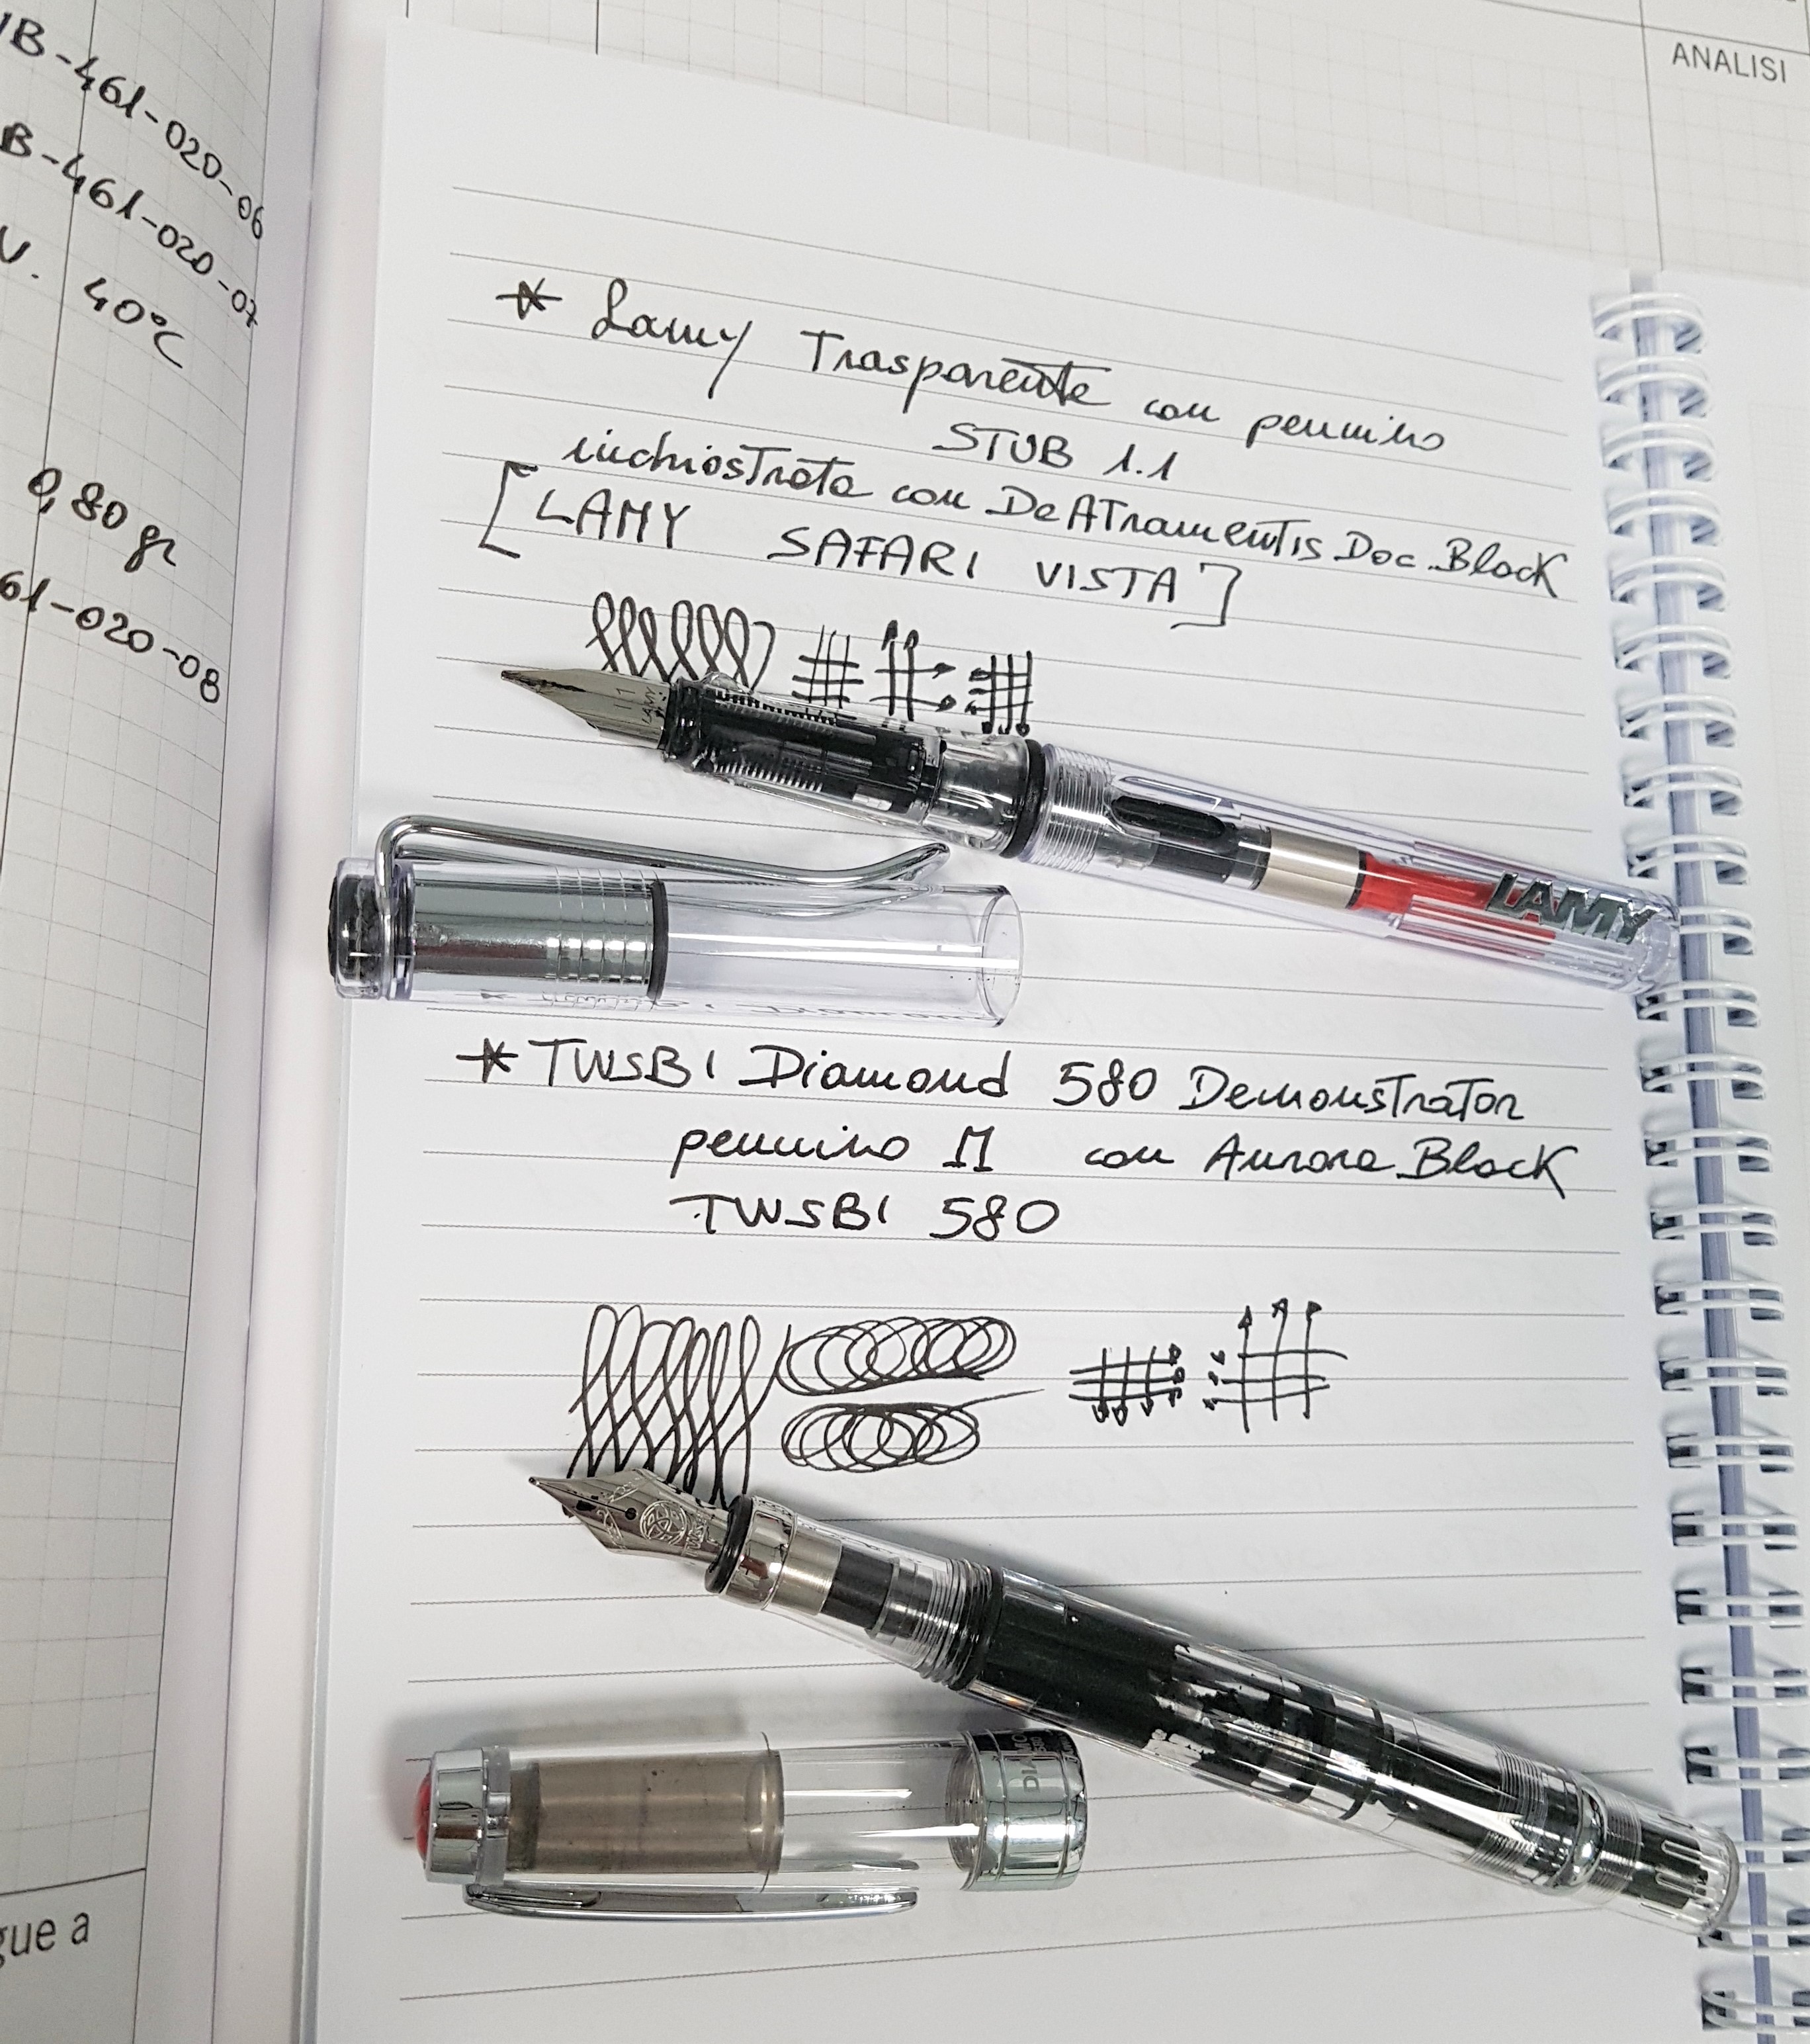 ANALISI
B-461-020-06
B-461-020-07
40°C
0,80 gr
61-020-08
gue a
* Lamy Trasparente con pennino
STUB 1.1
inchiostrata con De Atramentis Doc. Black
[LAMY SAFARI VISTA]
1.1
LAMY
LAMY
* TWSBI Diamond 580 Demonstrator
pennino M con Aurora Black
TWSBI 580